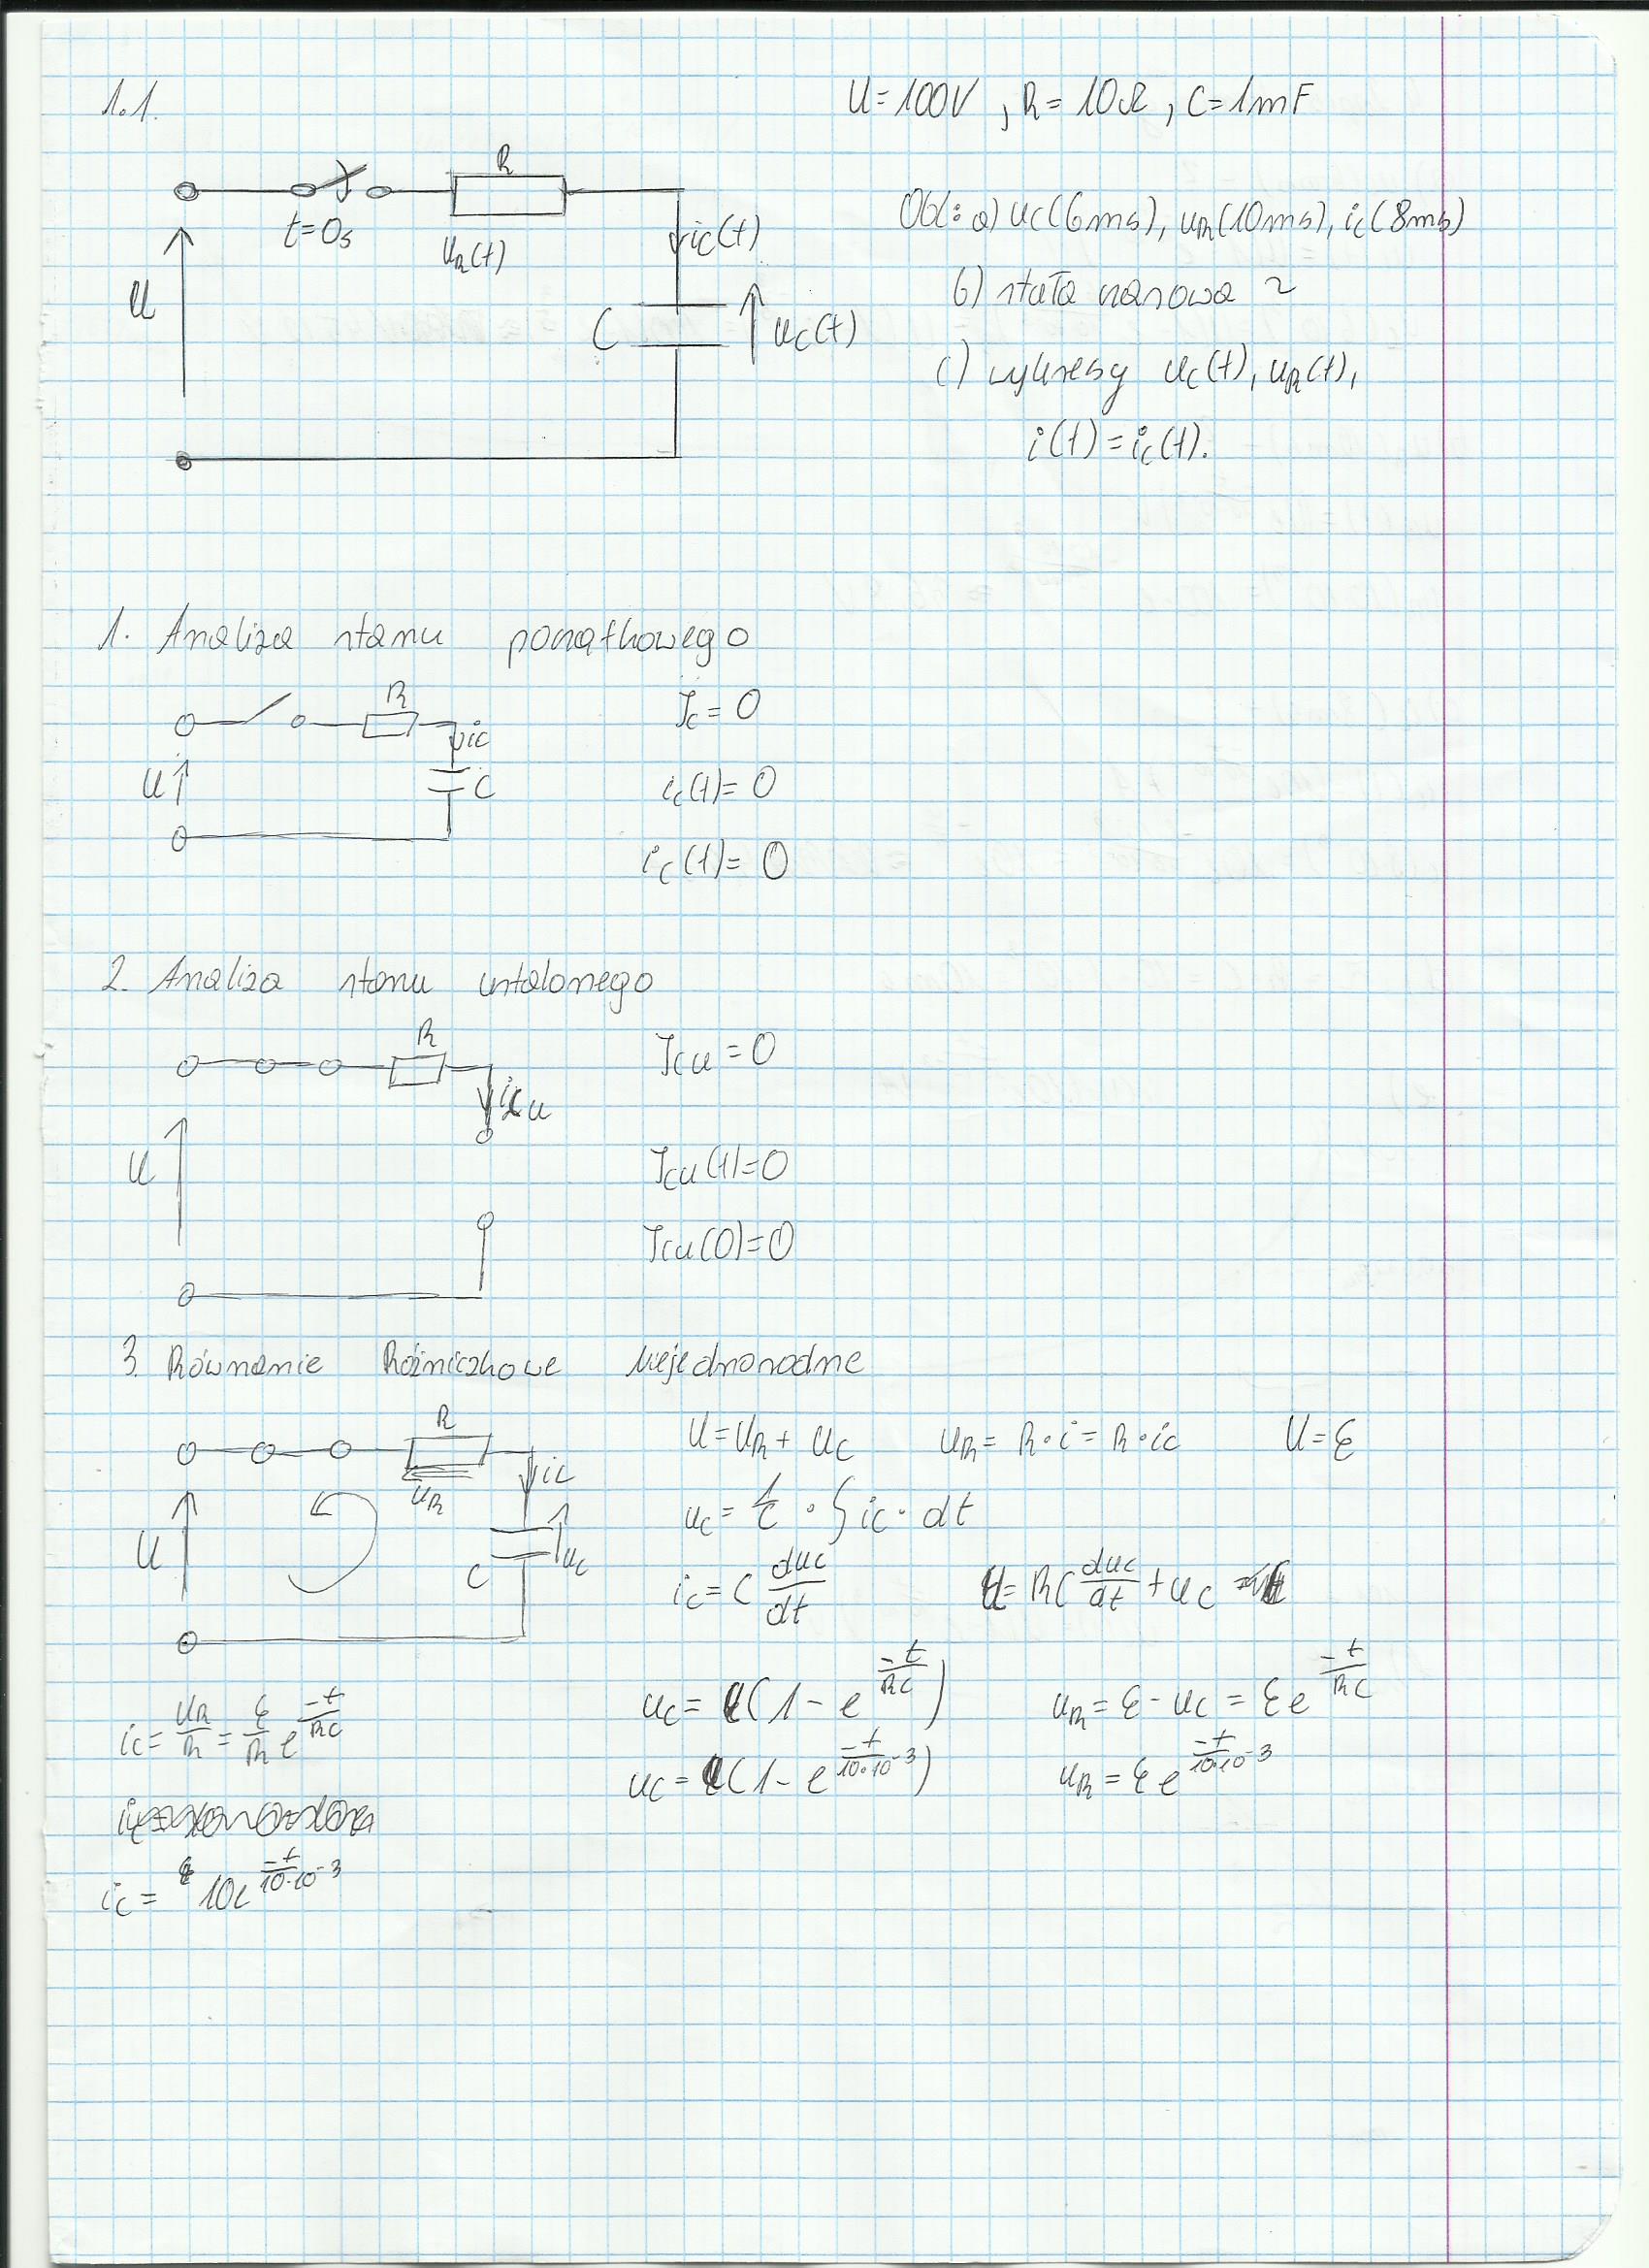 1.1.
U=100V, R=10Ω, C=1mF
R
t=0s
uR(t)
ic(t)
U
C
uc(t)
Obl: a) uc(6ms), uR(10ms), ic(8ms)
b) stała czasowa τ
c) wykresy uc(t), uR(t),
i(t)=ic(t).
1. Analiza stanu początkowego
R
ic
U
C
Ic=0
ic(t)=0
ic(t)=0
2. Analiza stanu ustalonego
R
icu
U
Icu=0
Icu(t)=0
Icu(0)=0
3. Równanie Różniczkowe Niejednorodne
R
uR
ic
U
C
uc
U=UR+uc uR=R·i=R·ic U=ε
uc=1/C·∫ic·dt
ic=C duc/dt U=RC duc/dt+uc
uc=ε(1-e^(-t/RC)) uR=ε-uc=εe^(-t/RC)
uc=ε(1-e^(-t/10·10^-3)) uR=εe^(-t/10·10^-3)
ic=UR/R=ε/R e^(-t/RC)
ic=10e^(-t/10·10^-3)